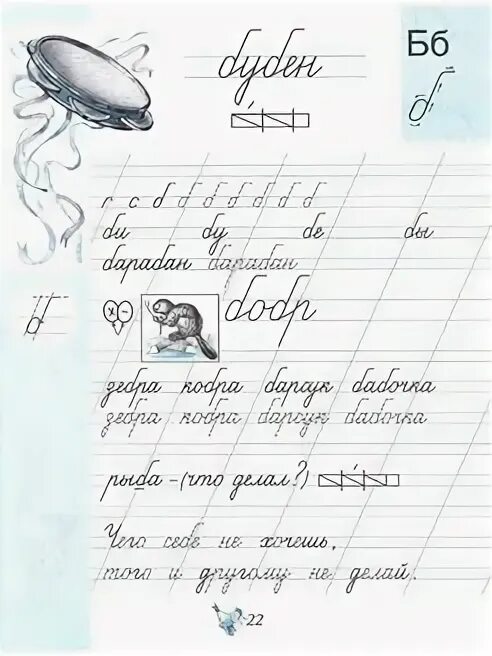 Бб
бубен
б
г с б б б б б б б
би бу бе бы
барабан барабан
б
х -
бобр
зебра кобра барсук бабочка
зебра кобра барсук бабочка
рыба - (что делал?)
Чего себе не хочешь,
того и другому не делай.
22